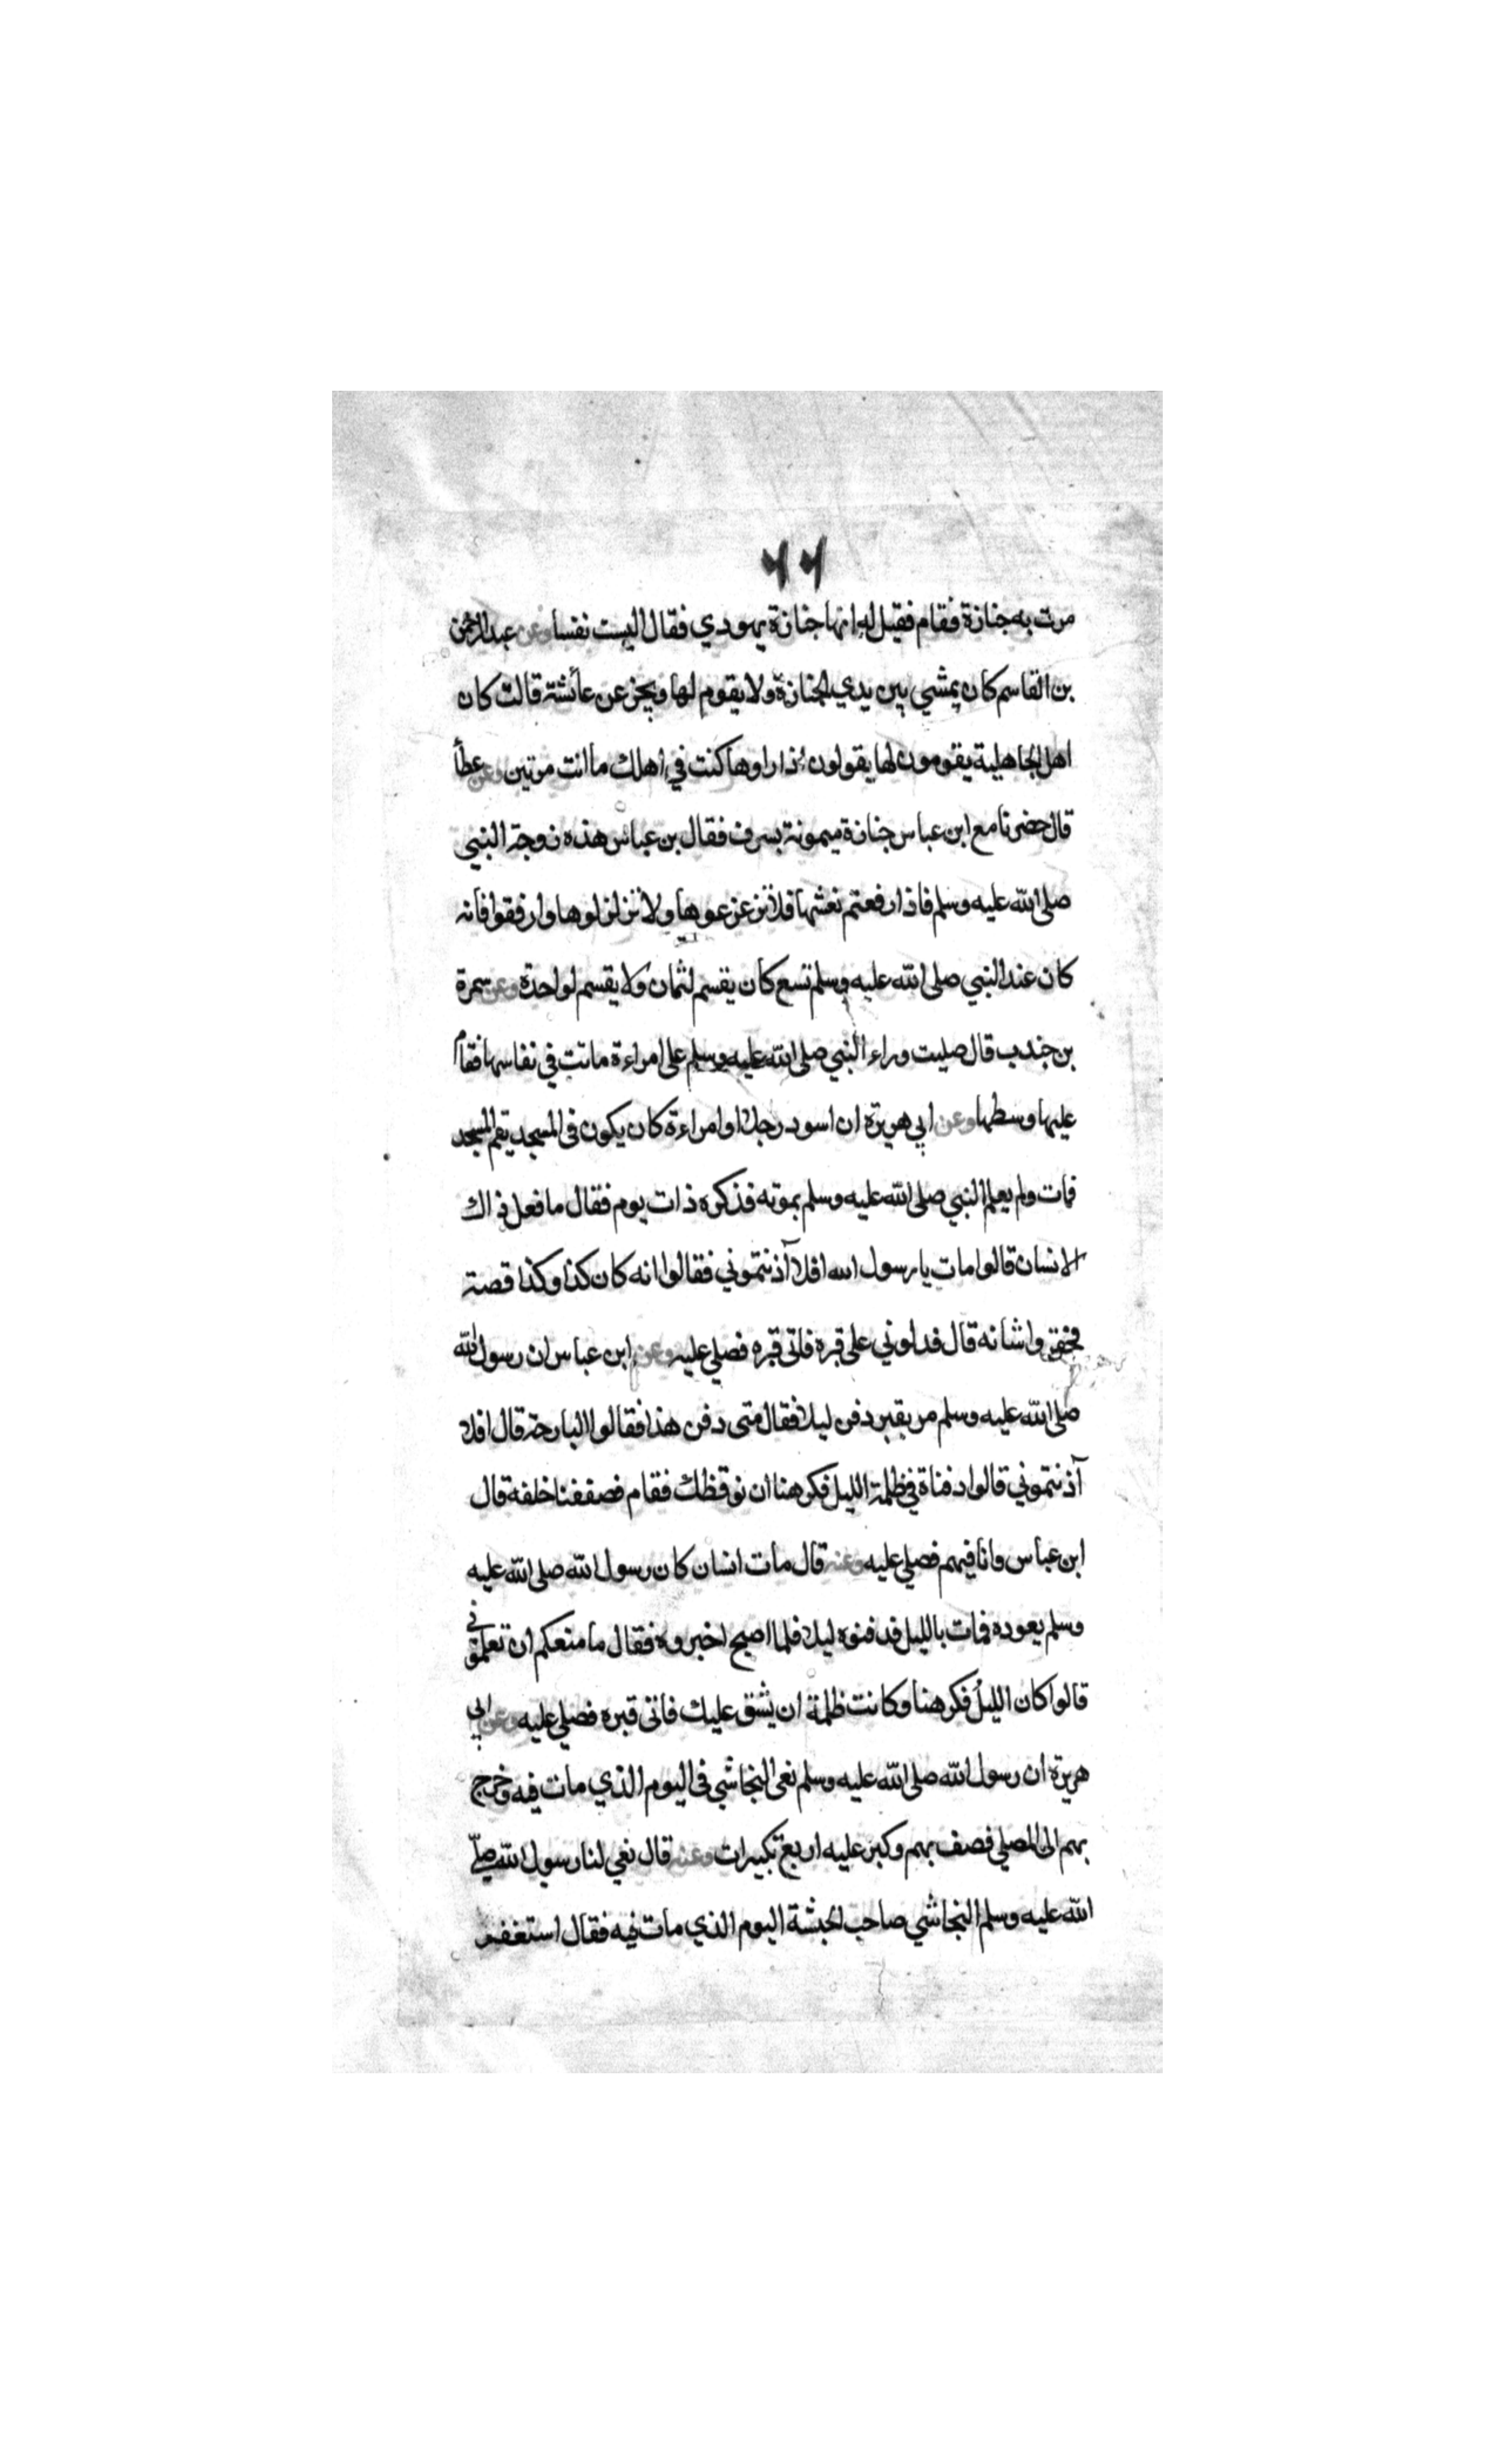 ٦٦
مرت به جنازة فقام فقيل له انها جنازة يهودي فقال اليست نفسا وعن عبدالرحمن
بن القاسم كان يمشي بين يدي الجنازة ولا يقوم لها ويخبر عن عائشة قالت كان
اهل الجاهلية يقومون لها يقولون اذا راوها كنت في اهلك ما انت مرتين وعن عطأ
قال حضرنا مع ابن عباس جنازة ميمونة بسرف فقال بن عباس هذه زوجة النبي
صلى الله عليه وسلم فاذا رفعتم نعشها فلا تزعزعوها ولا تزلزلوها وارفقوا فانه
كان عند النبي صلى الله عليه وسلم تسع كان يقسم لثمان ولا يقسم لواحدة وعن سمرة
بن جندب قال صليت وراء النبي صلى الله عليه وسلم على امراءة ماتت في نفاسها فقام
عليها وسطها وعن ابي هريرة ان اسود رجلا او امراءة كان يكون فى المسجد يقم المسجد
فمات ولم يعلم النبي صلى الله عليه وسلم بموته فذكره ذات يوم فقال ما فعل ذاك
الانسان قالوا مات يا رسول الله افلا آذنتموني فقالوا انه كان كذا وكذا قصته
فحقروا شانه قال فدلوني على قبره فاتى قبره فصلي عليه وعن ابن عباس ان رسول الله
صلى الله عليه وسلم مر بقبر دفن ليلا فقال متى دفن هذا فقالوا البارحة قال افلا
آذنتموني قالوا دفناة في ظلمة الليل فكرهنا ان نوقظك فقام فصففنا خلفه قال
ابن عباس وانا فيهم فصلي عليه وعنه قال مات انسان كان رسول الله صلى الله عليه
وسلم يعوده فمات بالليل فدفنوه ليلا فلما اصبح اخبروه فقال ما منعكم ان تعلموني
قالوا كان الليل فكرهنا وكانت ظلمة ان يشق عليك فاتى قبره فصلي عليه وعن ابي
هريرة ان رسول الله صلى الله عليه وسلم نعى النجاشي فى اليوم الذي مات فيه وخرج
بهم الى المصلي فصف بهم وكبر عليه اربع تكبيرات وعنه قال نعي لنا رسول الله صلى
الله عليه وسلم النجاشي صاحب الحبشة اليوم الذي مات فيه فقال استغفر